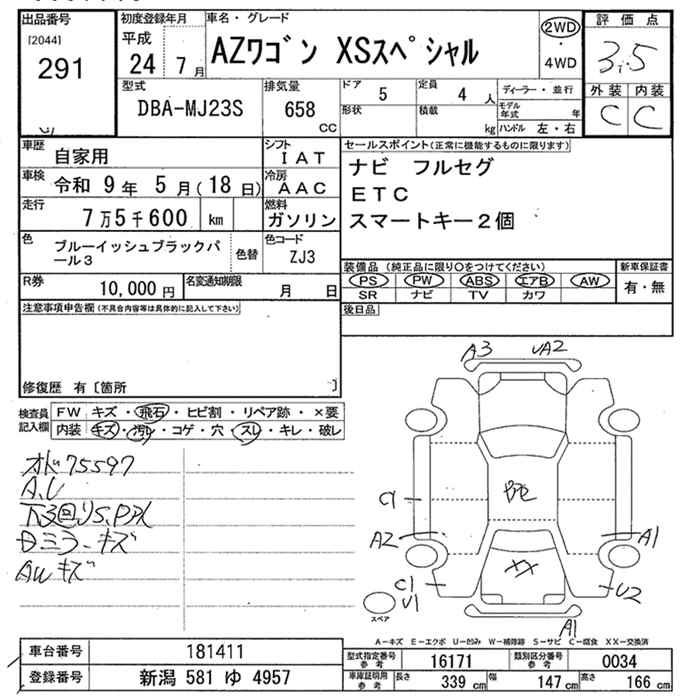 出品番号
[2044]
291
初度登録年月
平成
24 7月
車名・グレード
AZワゴン XSスペシャル
2WD
・
4WD
評価点
3.5
外装 内装
C C
型式
DBA-MJ23S
排気量
658 CC
ドア 5
定員 4 人
形状
積載 kg
ディーラー・並行
モデル年式 年
ハンドル 左・右
車歴 自家用
シフト IAT
車検 令和 9年 5月(18日)
冷房 AAC
走行 7万5千600 km
燃料 ガソリン
色 ブルーイッシュブラックパール3
色替
色コード ZJ3
R券 10,000円
名変通知期限 月 日
セールスポイント(正常に機能するものに限ります)
ナビ フルセグ
ETC
スマートキー2個
装備品(純正品に限り○をつけてください)
PS PW ABS エアB AW
SR ナビ TV カワ
新車保証書
有・無
後日品
注意事項申告欄(不具合内容等は具体的に記入して下さい)
修復歴 有〔箇所 〕
検査員記入欄
FW キズ・飛石・ヒビ割・リペア跡・×要
内装 キズ・汚レ・コゲ・穴・スレ・キレ・破レ
オド75597
A,U
下3回りS,P大
ミラーキズ
AWキズ
A3 UA2
C1
A2 A1
XX
C1 U2
U1
スペア
A1
A-キズ E-エクボ U-凹み W-補修跡 S-サビ C-腐食 XX-交換済
車台番号 181411
登録番号 新潟 581 ゆ 4957
型式指定番号 参考 16171
類別区分番号 参考 0034
車庫証明用 参考 長さ 339 cm 幅 147 cm 高さ 166 cm